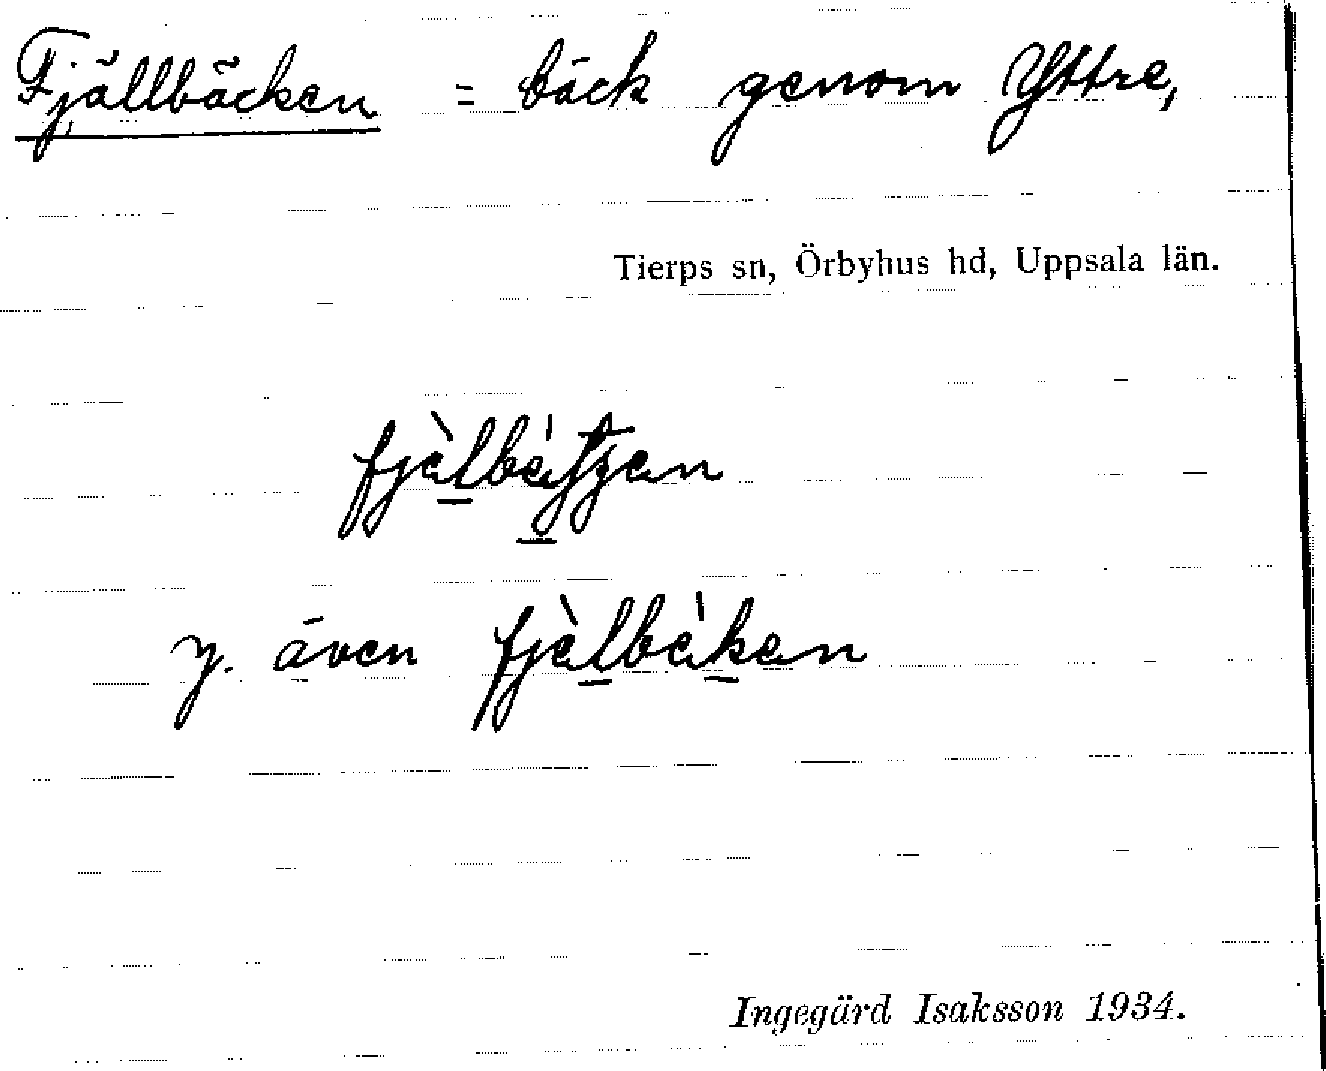 Fjällbäcken = bäck genom Yttre,
Tierps sn, Örbyhus hd, Uppsala län.
y. även fjèlbèken
Ingegärd Isaksson 1934.